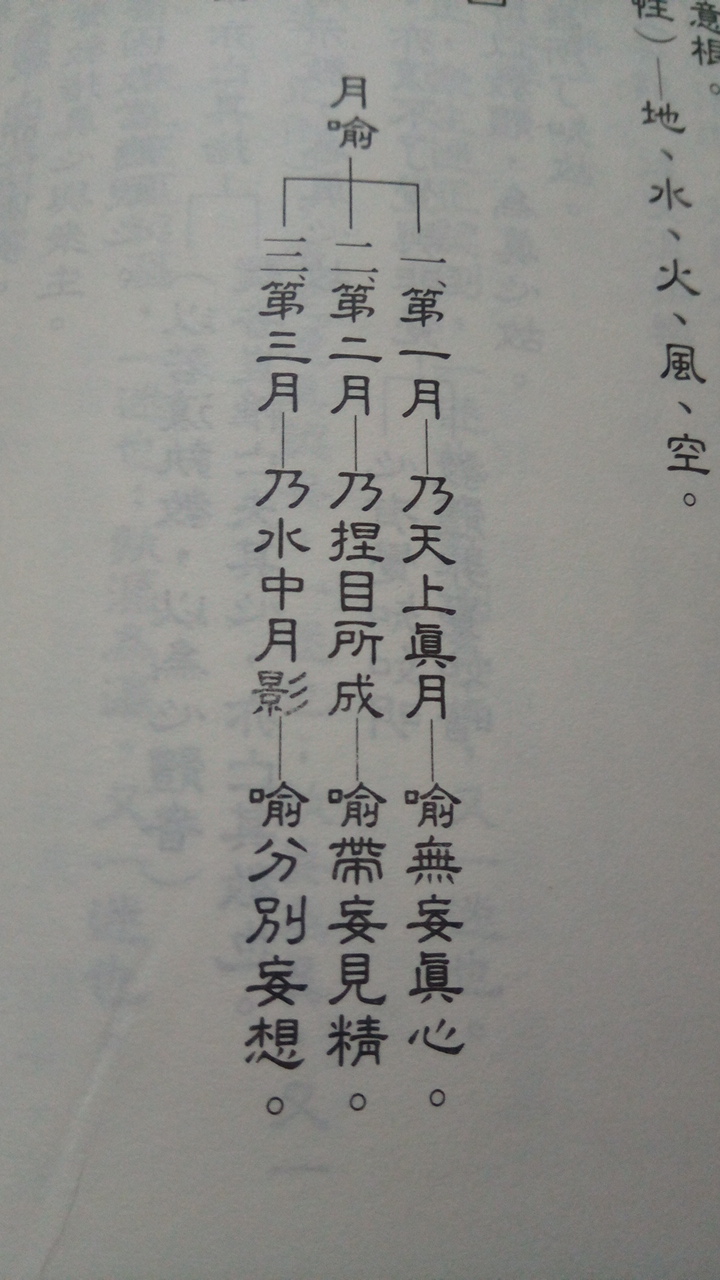 意根。
性）—地、水、火、風、空。
月喻
一、第一月—乃天上眞月—喻無妄眞心。
二、第二月—乃捏目所成—喻帶妄見精。
三、第三月—乃水中月影—喻分別妄想。